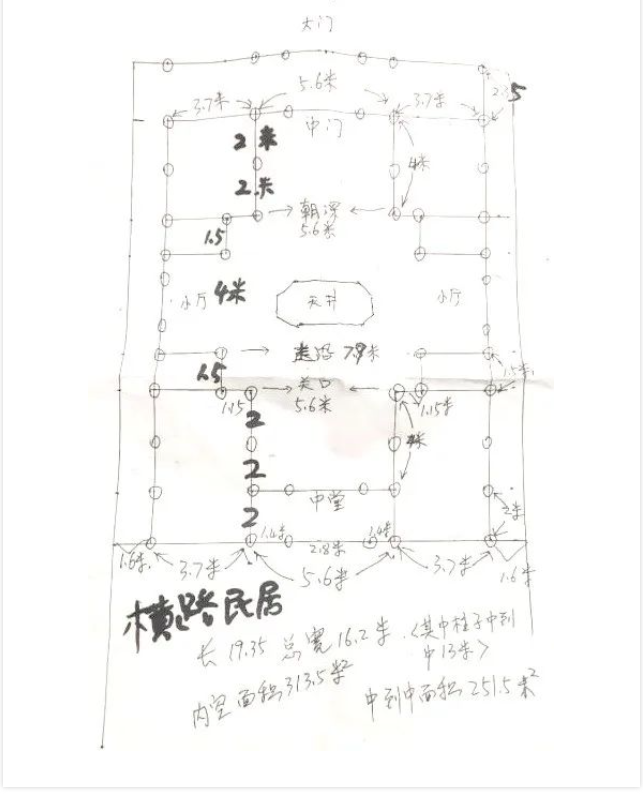 大门
5.6米
3.7米
3.7米
2.35
中门
2米
4米
2米
朝深
5.6米
1.5
小厅 4米
天井
小厅
7.9米
1.5米
1.5
关口
1.15
5.6米
1.15米
2
4米
2
中堂
2米
2
1.4米
2.8米
1.4米
1.6米
3.7米
5.6米
3.7米
1.6米
横路民居
长 19.35 总宽 16.2米 <其中柱子中到
中13米>
内空面积313.5米²
中到中面积251.5米²